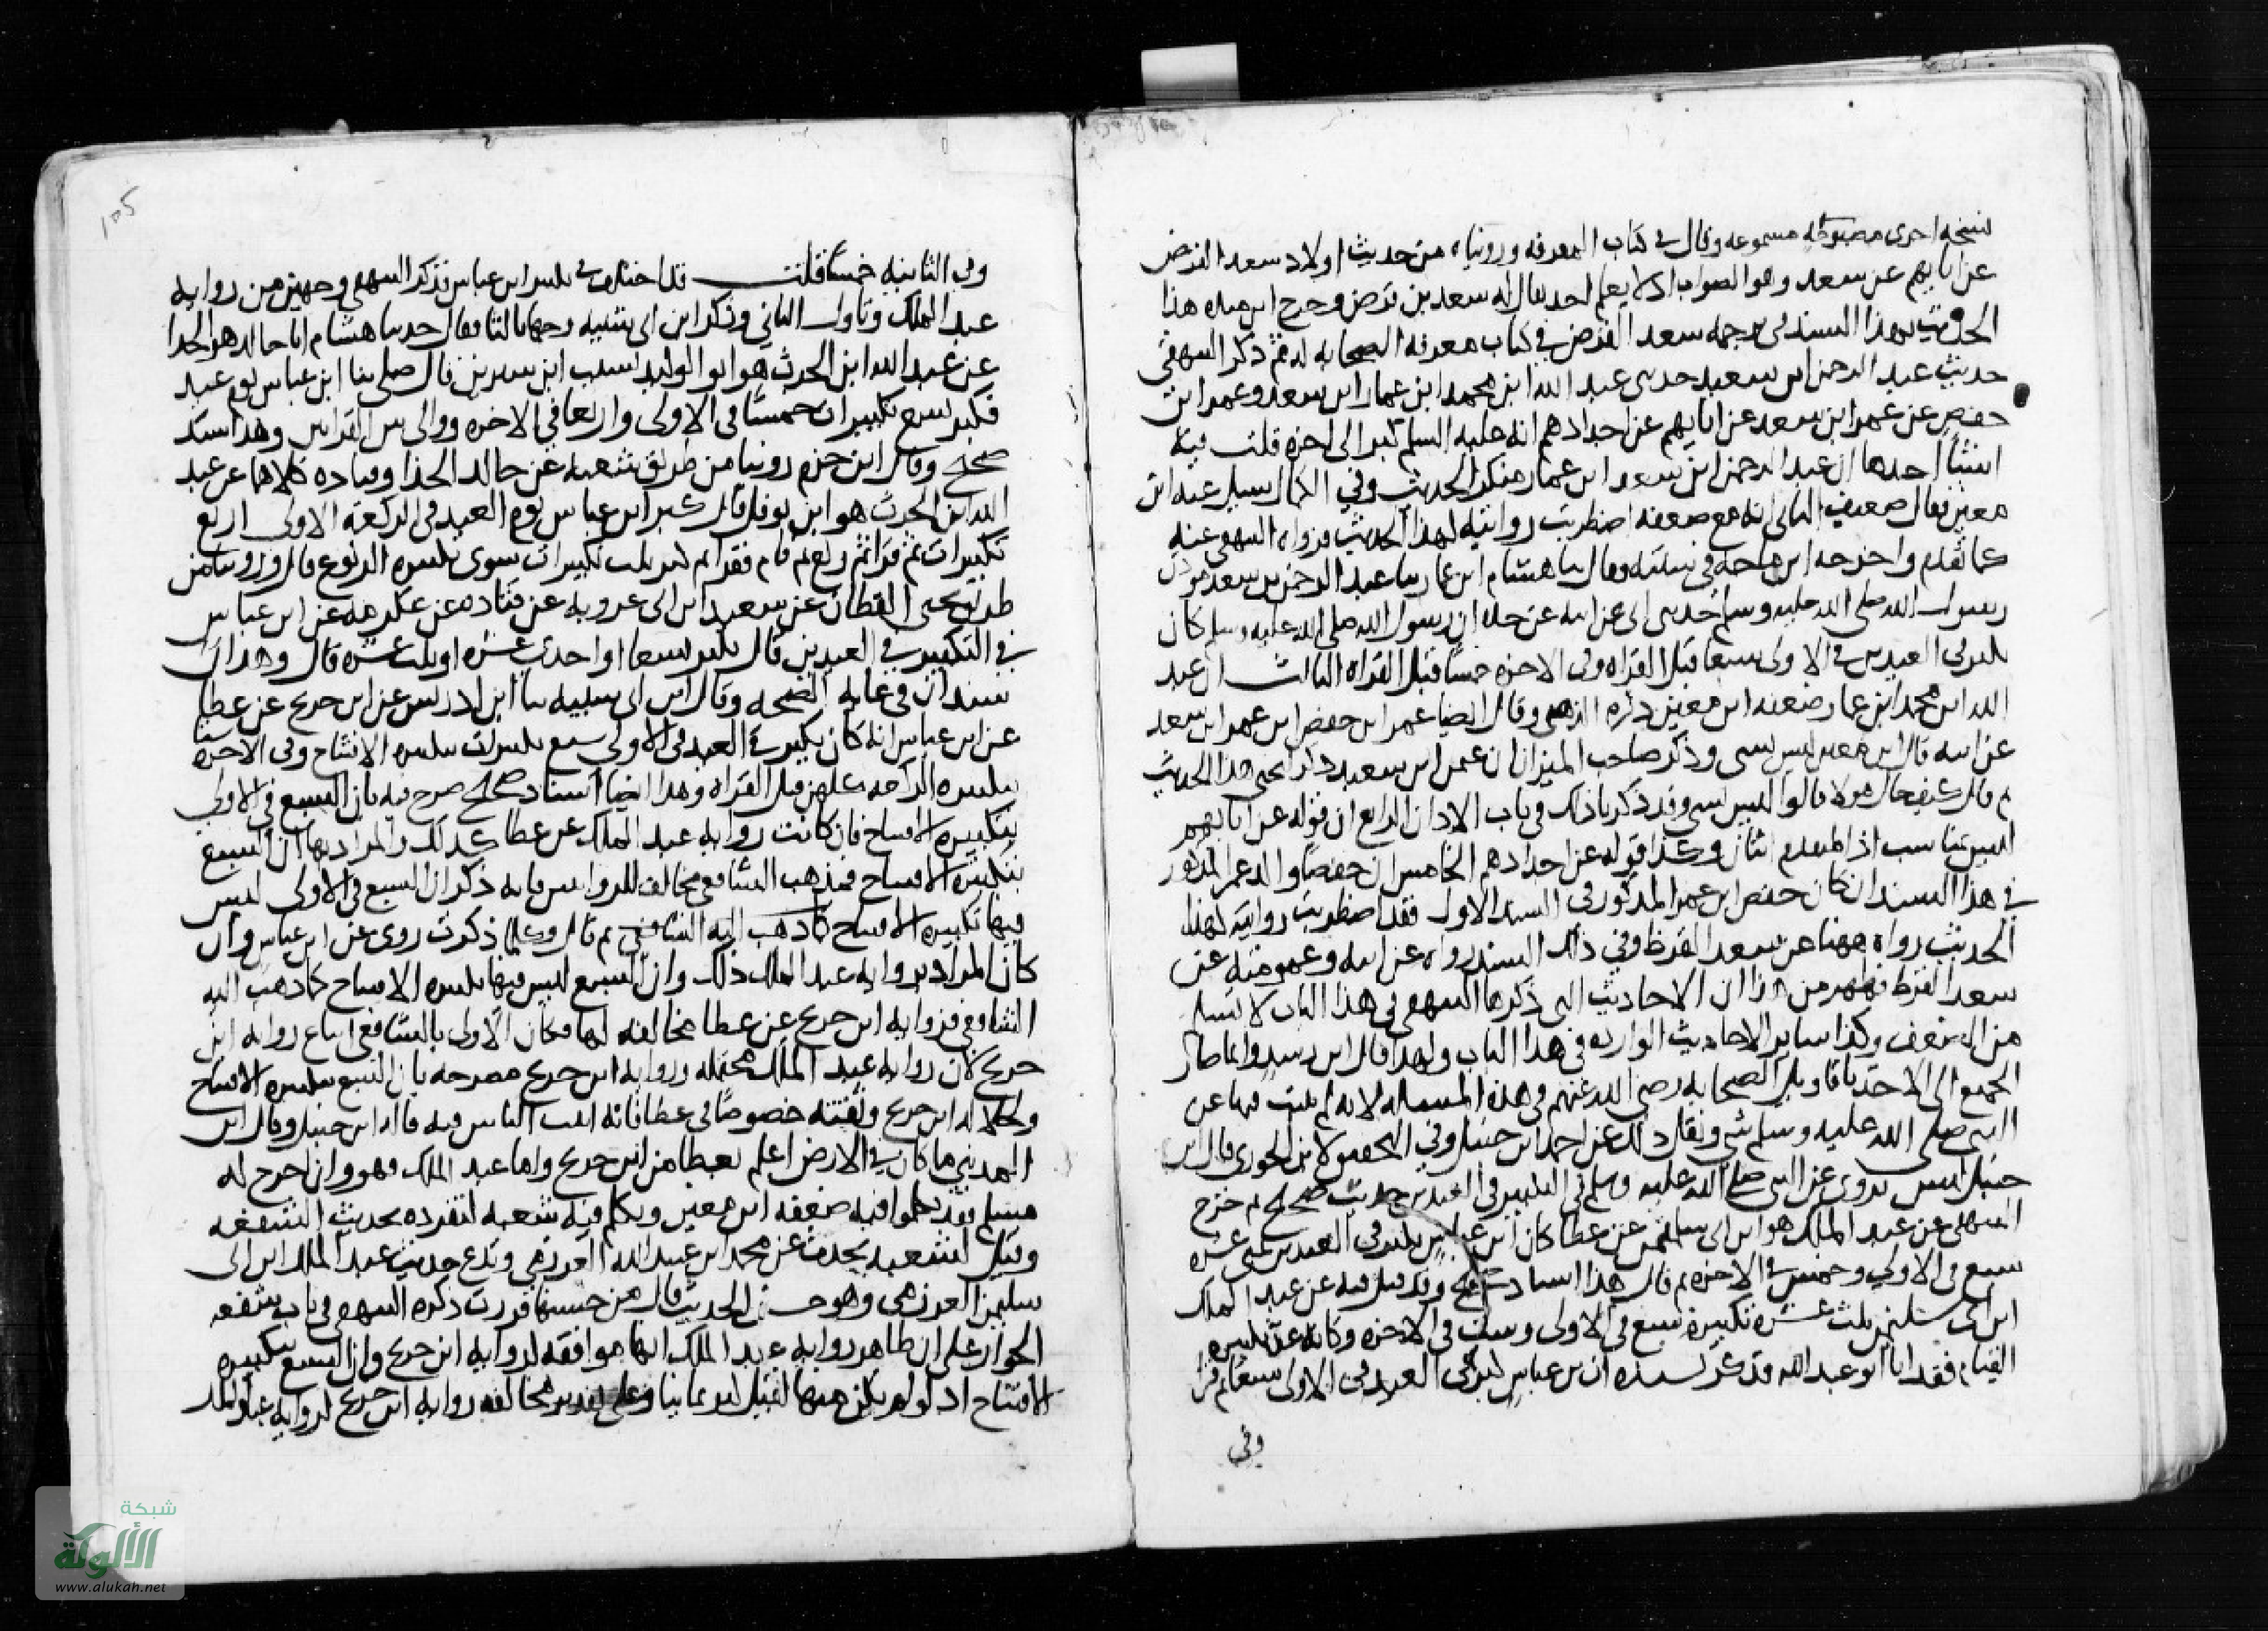 نسخه اخرى مضبوطه مسموعه وقال في كتاب المعرفه ورويناه من حديث اولاد سعد القرض
عن ابايهم عن سعد وهو الصواب اذ لا يعلم احد يقال له سعد بن قرض وخرج ابن منده هذا
الحديث بهذا السند في ترجمه سعد القرض في كتاب معرفه الصحابه له ثم ذكر البيهقي
حديث عبد الرحمن ابن سعيد حدثني عبد الله ابن محمد ابن عمار ابن سعد وعمر ابن
حفص عن عمر ابن سعد عن ابايهم عن اجدادهم انه عليه السلم كبر الى اخره قلت فيه
اشيا احدها ان عبد الرحمن ابن سعد ابن عمار منكر الحديث وفي الكمال سيل عنه ابن
معين فقال ضعيف الثاني انه مع ضعفه اضطربت روايته لهذا الحديث فرواه البيهقي عنه
كما تقدم واخرجه ابن ماجه في سننه وقال ثنا هشام ابن عمار ثنا عبد الرحمن بن سعد موذن
رسول الله صلى الله عليه وسلم حدثني ابي عن ابيه عن جده ان رسول الله صلى الله عليه وسلم كان
يكبر في العيدين في الاولى سبعا قبل القراه وفي الاخره خمسا قبل القراه الثالث ان عبد
الله ابن محمد ابن عمار ضعفه ابن معين ذكره الذهبي وقال ايضا عمر ابن حفص ابن عمر ابن سعد
عن ابيه قال ابن معين ليس بشي وذكر صاحب الميزان ان عثمن ابن سعيد ذكر ليحيى هذا الحديث
ثم قال كيف حال هولا قال ليسوا بشي وقد ذكرنا ذلك في باب الاذان الرابع ان قوله عن ابايهم
ليس بمناسب اذ المتقدم اثنان وكذا قوله عن اجدادهم الخامس ان حفصا والد عمر المذكور
في هذا السند ان كان حفص ابن عمر المذكور في السند الاول فقد اضطربت روايته لهذا
الحديث رواه ههنا عن سعد القرظ وفي ذلك السند رواه عن ابيه وعمومته عن
سعد القرظ فظهر من هذا ان الاحاديث التي ذكرها البيهقي في هذا الباب لا تسلم
من الضعف وكذا ساير الاحاديث الوارده في هذا الباب ولهذا قال ابن رشد وانما صار
الجميع الى الاخذ باقاويل الصحابه رضي الله عنهم في هذه المسئله لانه لم يثبت فيها عن
النبي صلى الله عليه وسلم شي ونقل ذلك عن احمد ابن حنبل وفي التحقيق لابن الجوزي قال ابن
حنبل ليس يروى عن النبي صلى الله عليه وسلم في التكبير في العيدين حديث صحيح ثم خرج
البيهقي عن عبد الملك هو ابن ابي سليمن عن عطا كان ابن عباس يكبر في العيدين ثنتي عشره
سبع في الاولى وخمس في الاخره ثم قال هذا اسناد صحيح وقد قيل فيه عن عبد الملك
ابن ابي سليمن ثلث عشره تكبيرة سبع في الاولى وست في الاخره وكانه عد تكبيره
القيام فقد انا ابو عبد الله فذكر بسنده ان بن عباس كبر في العيد في الاولى سبعا ثم قرا
وفي
وفي الثانيه خمسا قلت قد اختلف في تكبير ابن عباس فذكر البيهقي وجهين من روايه
عبد الملك وتاول الثاني وذكر ابن ابي شيبه وجها ثالثا فقال حدثنا هشام انا خالد هو الحذا
عن عبد الله ابن الحرث هو ابو الوليد نسيب ابن سيرين قال صلى بنا ابن عباس يوم عيد
فكبر تسع تكبيرات خمسا في الاولى واربعا في الاخره ووالى بين القراتين وهذا سند
صحيح وقال ابن حزم روينا من طريق شعبه عن خالد الحذا وقتاده كلاهما عن عبد
الله ابن الحرث هو ابن نوفل قال كبر ابن عباس يوم العيد في الركعه الاولى اربع
تكبيرات ثم قرا ثم ركع ثم قام فقرا ثم كبر ثلث تكبيرات سوى تكبيره الركوع قال وروينا من
طريق يحيى القطان عن سعيد ابن ابي عروبه عن قتاده عن عكرمه عن ابن عباس
في التكبير في العيدين قال يكبر تسعا او احدى عشره او ثلث عشره قال وهذان
سندان في غايه الصحه وقال ابن ابي شيبه ثنا ابن ادريس عن ابن جريج عن عطا
عن ابن عباس انه كان يكبر في العيد في الاولى سبع تكبيرات بتكبيره الافتتاح وفي الاخره ستا
بتكبيره الركعه كلهن قبل القراه وهذا ايضا اسناد صحيح صرح فيه بان السبع في الاولى
بتكبيره الافتتاح فان كانت روايه عبد الملك عن عطا كذلك والمراد بها ان السبع
بتكبيره الافتتاح فمذهب الشافعي مخالف للروايتين فانه ذكر ان السبع في الاولى ليس
فيها تكبيره الافتتاح كما ذهب اليه الشافعي ثم قال وكلما ذكرت روى عن ابن عباس وان
كان المراد بروايه عبد الملك ذلك وان السبع ليس فيها تكبيره الافتتاح كما ذهب اليه
الشافعي فروايه ابن جريج عن عطا مخالفه لها فكان الاولى بالشافعي اتباع روايه ابن
جريج لان روايه عبد الملك محتمله وروايه ابن جريج مصرحه بان السبع بتكبيره الافتتاح
ولجلاله ابن جريج وثقته خصوصا في عطا فانه اثبت الناس فيه قاله ابن حنبل وقال ابن
المديني ما كان في الارض اعلم بعطا من ابن جريج واما عبد الملك فهو وان اخرج له
مسلم فقد تكلموا فيه ضعفه ابن معين وتكلم فيه شعبه لتفرده بحديث الشفعه
وقيل لشعبه تحدث عن محمد ابن عبيد الله العرزمي وتدع حديث عبد الملك ابن ابي
سليمن العرزمي وهو حسن الحديث قال من حسنها فررت ذكره البيهقي في باب شفعه
الجوار على ان ظاهر روايه عبد الملك انها موافقه لروايه ابن جريج وان السبع بتكبيره
الافتتاح اذ لو لم تكن منها لقيل كبر ثمانيا وعلى تقدير مخالفه روايه ابن جريج لروايه عبد الملك
١٠٥
شبكة
الألوكة
www.alukah.net